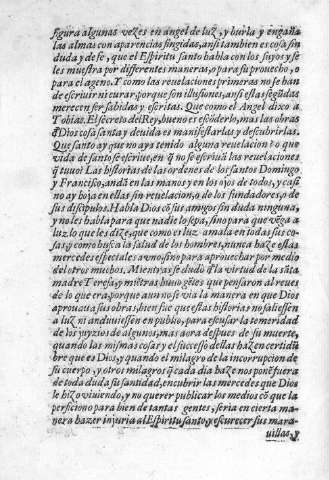 figura algunas vezes en angel de luz, y burla y engaña
las almas con aparencias fingidas, ansi tambien es cosa sin
duda y de fe, que el Espiritu santo habla con los suyos y se
les muestra por differentes maneras, o para su prouecho, o
para el ageno. Y como las reuelaciones primeras no se han
de escriuir ni curar, porque son illusiones, ansi estas segũdas
merecen ser sabidas y escritas. Que como el Angel dixo a
Tobias. El secreto del Rey, bueno es escõderlo, mas las obras
d̃ Dios cosa santa y deuida es manifestarlas y descubrirlas.
Que santo ay que no aya tenido alguna reuelacion? o que
vida de santo se escriue, en q̃ no se escriuã las reuelaciones
q̃ tuuo? Las historias de las ordenes de los santos Domingo
y Francisco, andã en las manos y en los ojos de todos, y casi
no ay hoja en ellas sin reuelacion, o de los fundadores, o de
sus discipulos. Habla Dios cõ sus amigos sin duda ninguna,
y no les habla para que nadie lo sepa, sino para que vẽga a
luz lo que les dize, que como es luz amala en todas sus co-
sas, y como busca la salud de los hombres, nunca haze estas
mercedes especiales a vno, sino para aprouechar por medio
del otros muchos. Mientras se dudò d̃ la virtud de la sãta
madre Teresa, y mientras huuo gẽtes que pensaron al reues
de lo que era, porque aun no se via la manera en que Dios
aprouaua sus obras, bien fue que estas historias no saliessen
a luz ni anduuiessen en publico, para escusar la temeridad
de los juyzios de algunos, mas aora despues de su muerte,
quando las mismas cosas y el successo dellas hazen certidũ
bre que es Dios, y quando el milagro de la incorrupcion de
su cuerpo, y otros milagros q̃ cada dia haze nos ponẽ fuera
de toda duda su santidad, encubrir las mercedes que Dios
le hizo viuiendo, y no querer publicar los medios cõ que la
perficiono para bien de tantas gentes, seria en cierta ma-
nera hazer injuria al Espiritu santo, y escurecer sus mara-
uillas, y